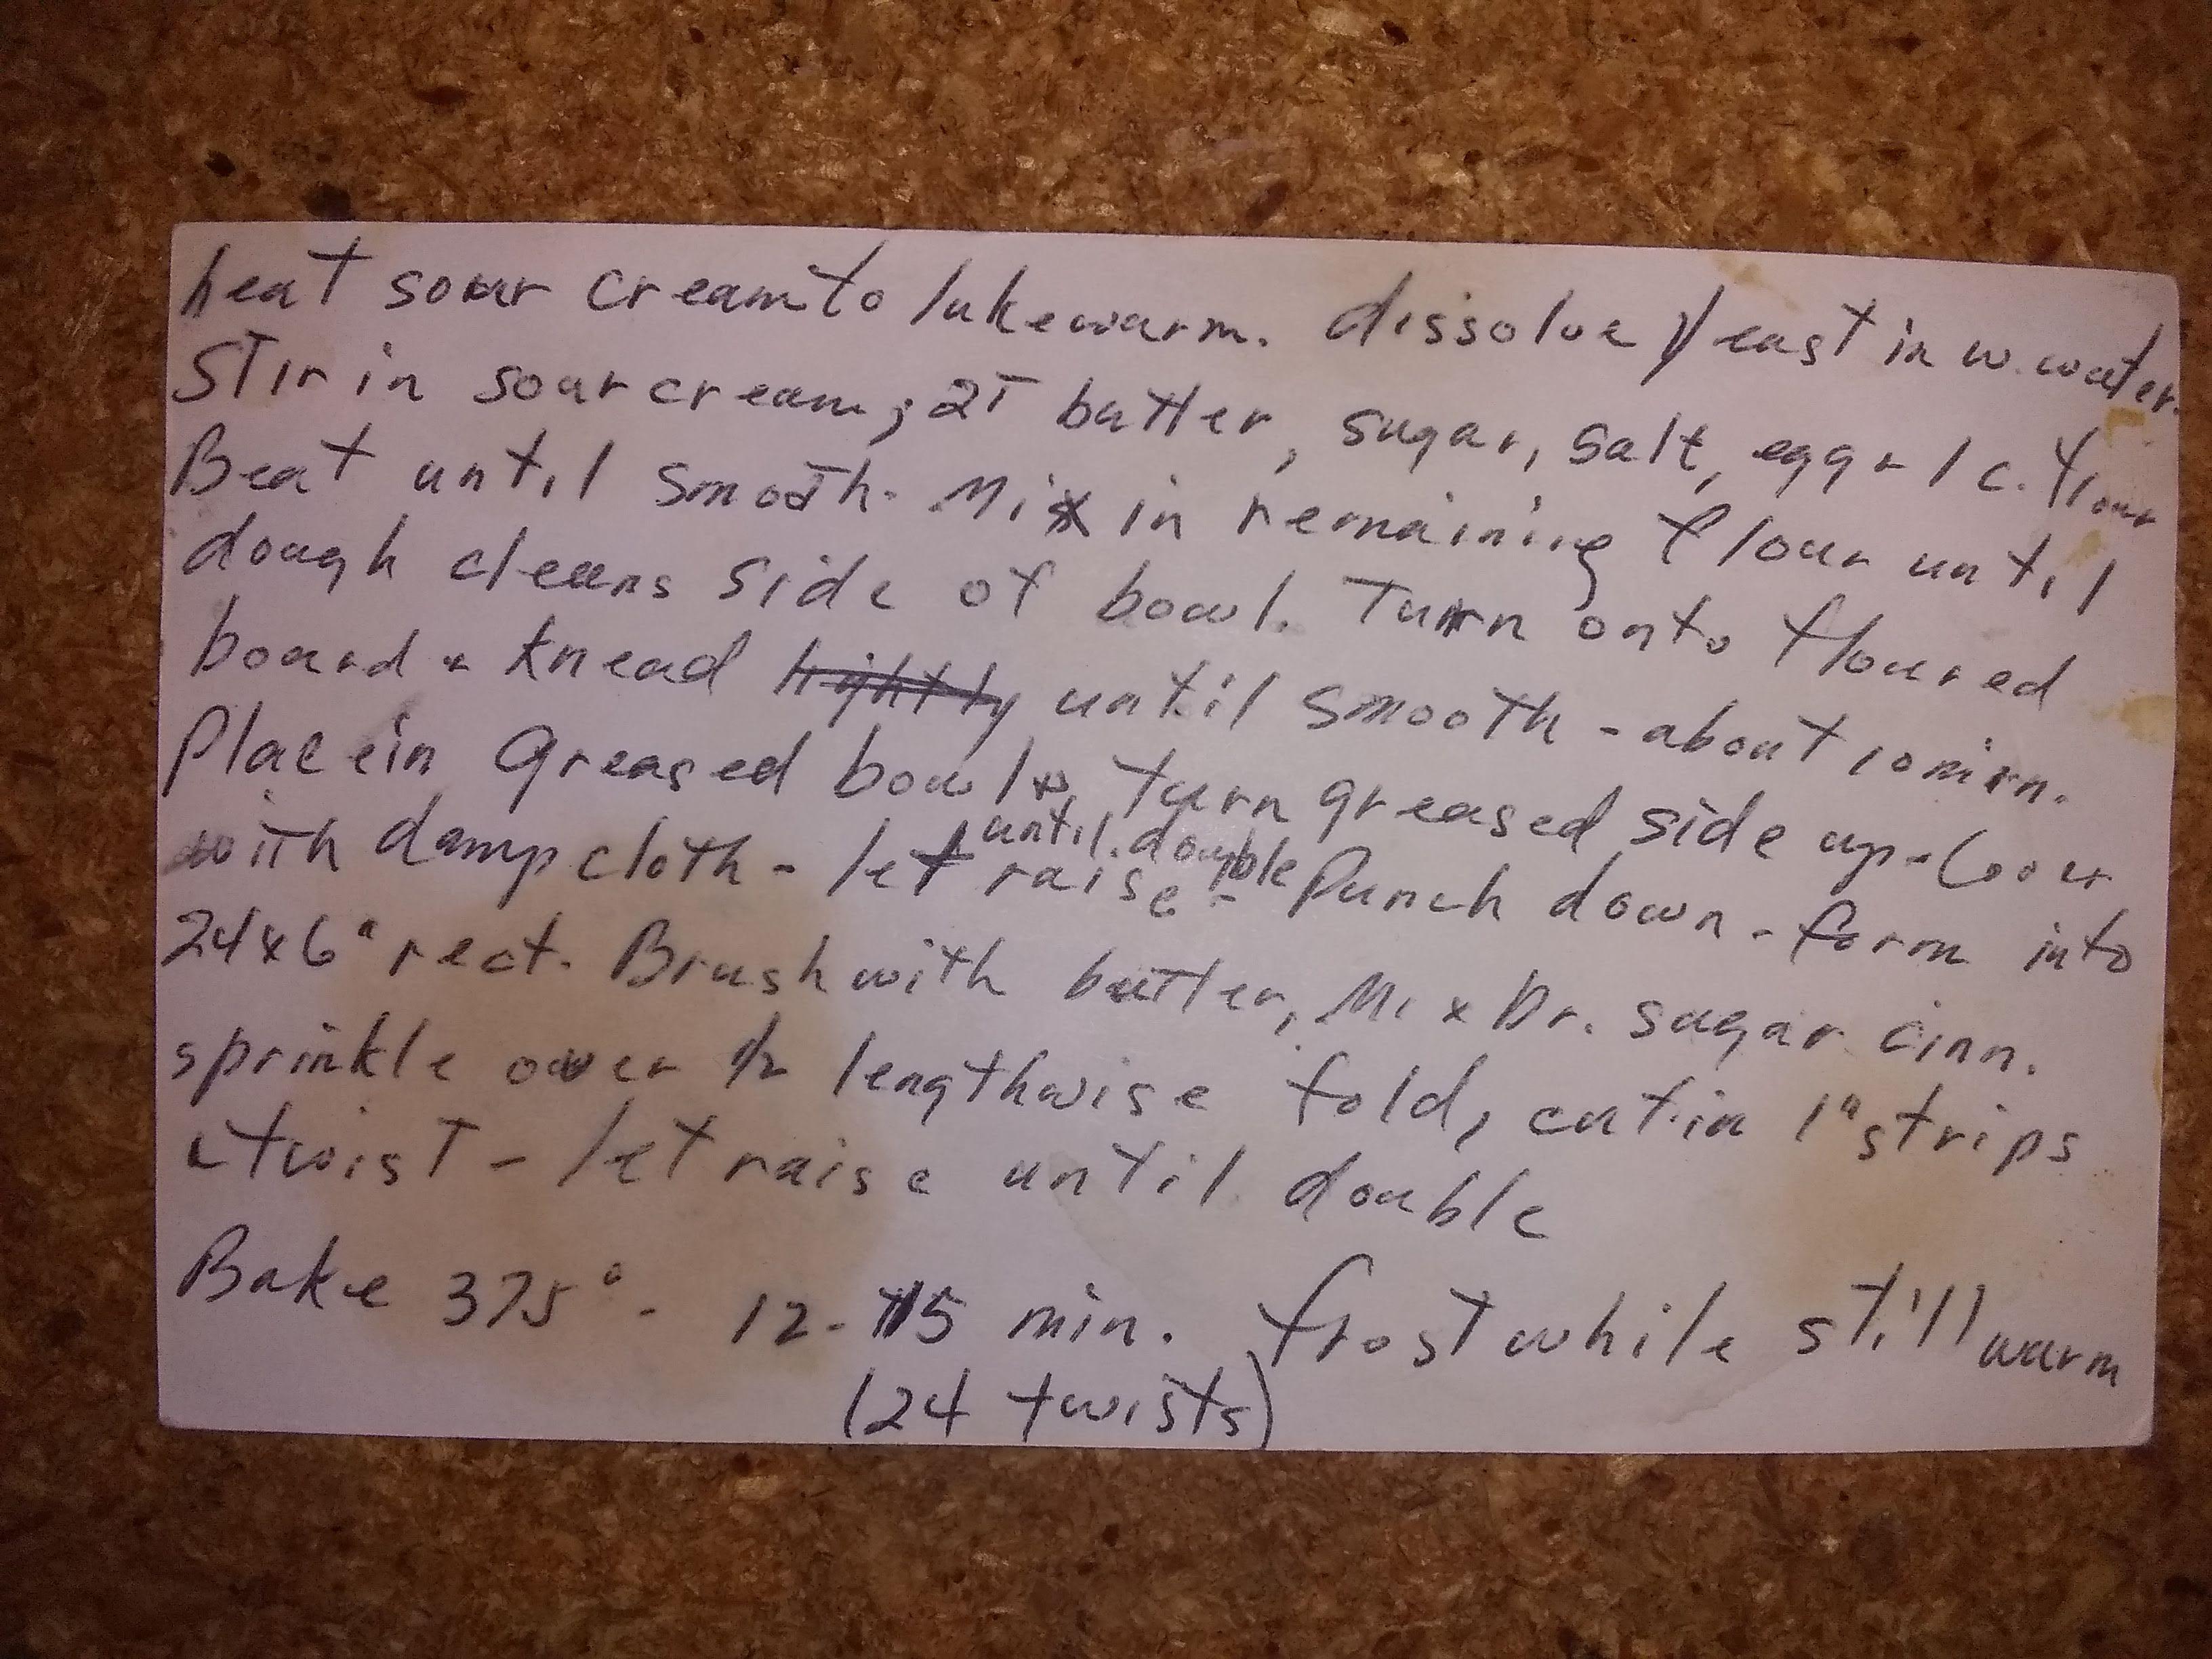 heat sour cream to lukewarm. dissolve yeast in w. water.
Stir in sour cream; 2T butter, sugar, salt, egg + 1 c. flour
Beat until smooth. Mix in remaining flour until
dough cleans side of bowl. Turn onto floured
board + knead lightly until smooth - about 10 min.
Place in greased bowl + turn greased side up - Cover
with damp cloth - let raise until double - Punch down - form into
24x6" rect. Brush with butter, Mix br. sugar cinn.
sprinkle over 1/2 lengthwise fold, cut in 1" strips
+ twist - let raise until double
Bake 375° - 12-15 min. frost while still warm
(24 twists)